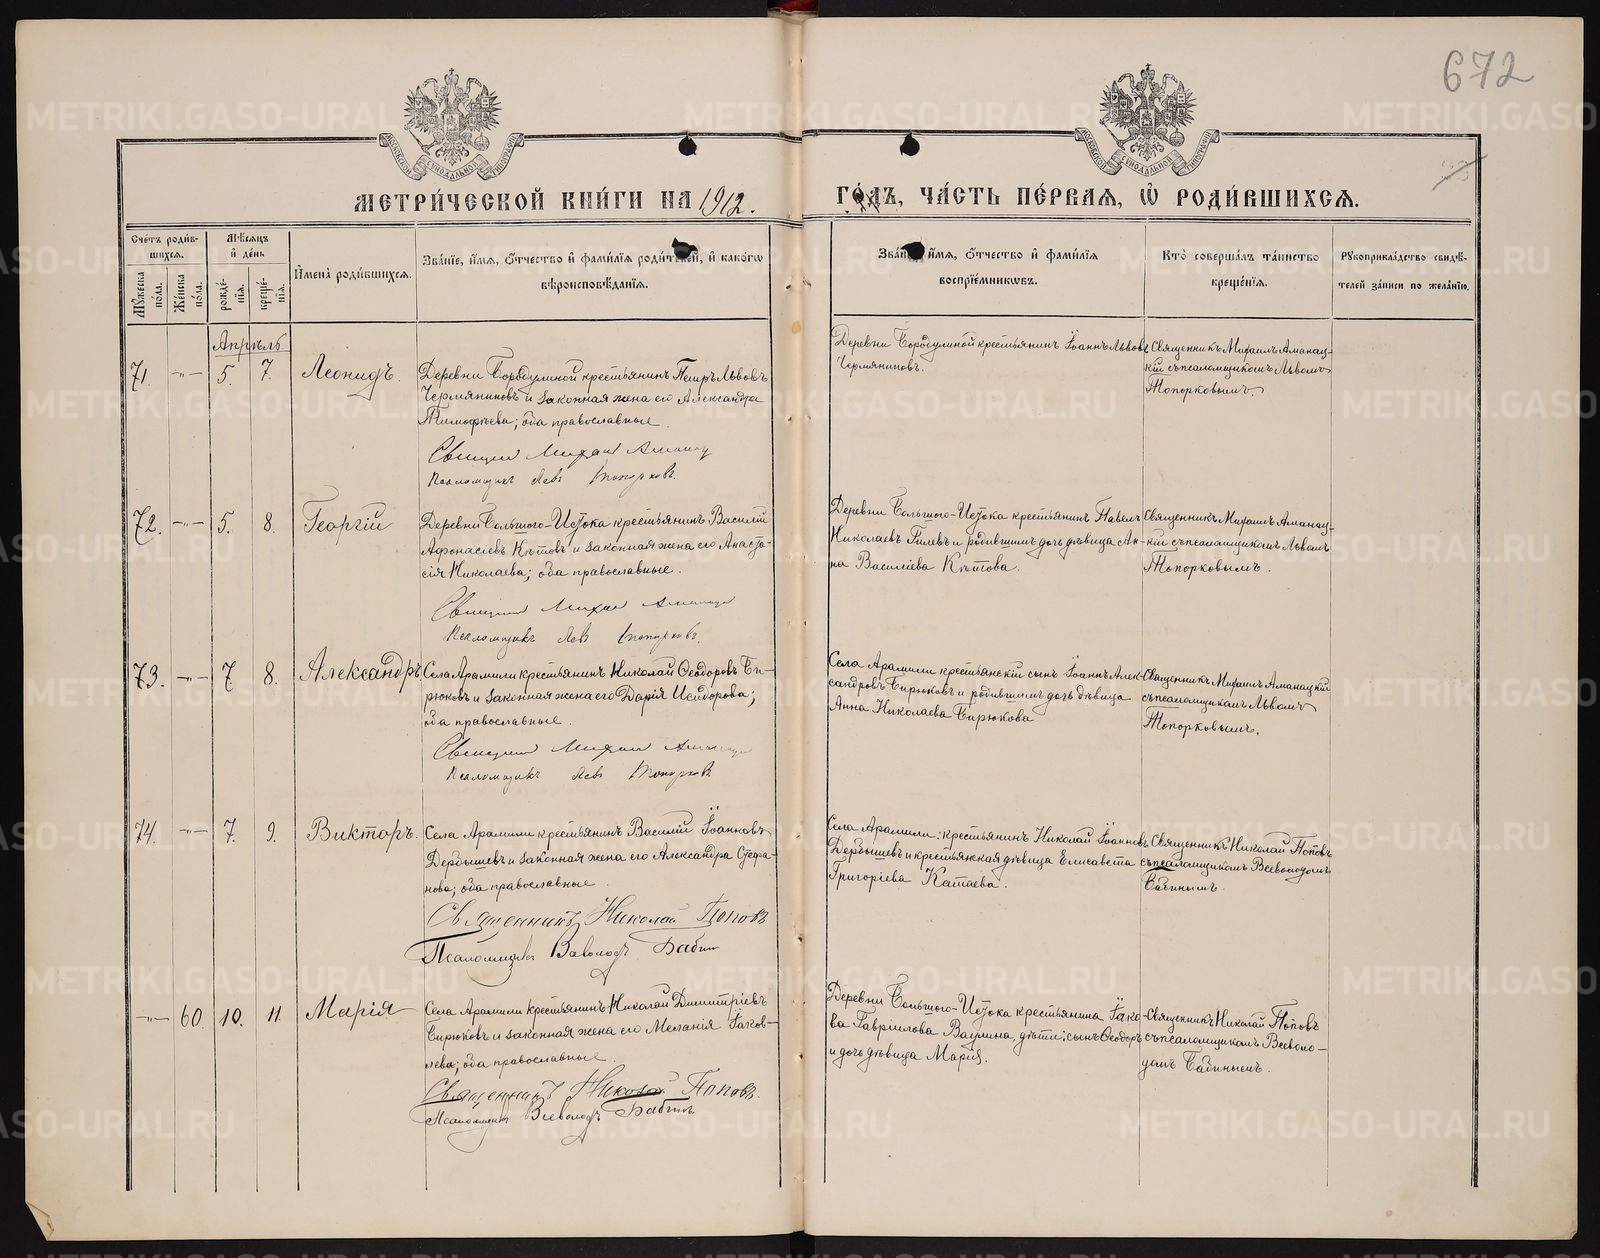 672
МЕТРИ́ЧЕСКОЙ КНИ́ГИ НА 1912. ГО́ДЪ, ЧА́СТЬ ПЕ́РВАЯ, Ѿ РОДИ́ВШИХСЯ.
Сче́тъ роди́в-
шихся.
Му́жеска по́ла.
Же́нска по́ла.
Мѣ́сяцъ и де́нь
рожде́нїя.
креще́нїя.
И҆мена̀ роди́вшихся.
Зва́нїе, и҆́мя, ѻ҆́тчество и҆ фами́лїя роди́телей, и҆ како́гѡ
вѣроисповѣ́данїя.
Зва́нїе, и҆́мя, ѻ҆́тчество и҆ фами́лїя
воспрїе́мникѡвъ.
Кто̀ соверша́лъ та́инство
креще́нїя.
Рукоприкла́дство свидѣ́-
телей за́писи по жела́нїю.
Апрѣль
71.
—„—
5.
7.
Леонидъ.
Деревни Бородулиной крестьянинъ Петръ Львовъ
Чермяниновъ и законная жена его Александра
Тимофѣева; оба православные.
Священ Михаил Аманац
Псаломщикъ Левъ Топорковъ.
Деревни Бородулиной крестьянинъ Іоаннъ Львовъ
Чермяниновъ.
Священникъ Михаилъ Аманац-
кій съ псаломщикомъ Львомъ
Топорковымъ.
72.
—„—
5.
8.
Георгій
Деревни Большого-Истока крестьянинъ Василій
Афонасіевъ Кѣтовъ и законная жена его Анаста-
сія Николаева; оба православные.
Священ Михаил Аманац
Псаломщикъ Левъ Топорковъ.
Деревни Большого-Истока крестьянинъ Павелъ
Николаевъ Гилевъ и родившимъ дочь дѣвица Ан-
на Василіева Кѣтова.
Священникъ Михаилъ Аманац-
кій съ псаломщикомъ Львомъ
Топорковымъ.
73.
—„—
7
8.
Александръ
Села Арамили крестьянинъ Николай Ѳеодоровъ Би-
рюковъ и законная жена его Дарія Исидорова;
оба православные.
Священ Михаил Аманац
Псаломщикъ Левъ Топорковъ
Села Арамили крестьянскій сынъ Іоаннъ Алек-
сандровъ Бирюковъ и родившимъ дочь дѣвица
Анна Николаева Бирюкова
Священникъ Михаилъ Аманацкій
съ псаломщикомъ Львомъ
Топорковымъ.
74.
—„—
7.
9.
Викторъ.
Села Арамили крестьянинъ Василій Іоанновъ
Дербышевъ и законная жена его Александра Стефа-
нова; оба православные.
Священникъ Николай Поповъ
Псаломщикъ Всеволодъ Бабин
Села Арамили: крестьянинъ Николай Іоанновъ
Дербышевъ и крестьянская дѣвица Елисавета
Григоріева Катаева.
Священникъ Николай Поповъ
съ псаломщикомъ Всеволодомъ
Бабинымъ.
—„—
60
10.
11.
Марія
Села Арамили крестьянинъ Николай Димитріевъ
Бирюковъ и законная жена его Меланія Іаков-
лева; оба православные.
Священникъ Николай Поповъ.
Псаломщикъ Всеволодъ Бабинъ
Деревни Большого-Истока крестьянина Іако-
ва Гавріилова Ваулина, дѣти: сынъ Ѳеодоръ
и дочь дѣвица Марія.
Священникъ Николай Поповъ
съ псаломщикомъ Всеволо-
домъ Бабинымъ.
METRIKI.GASO-URAL.RU